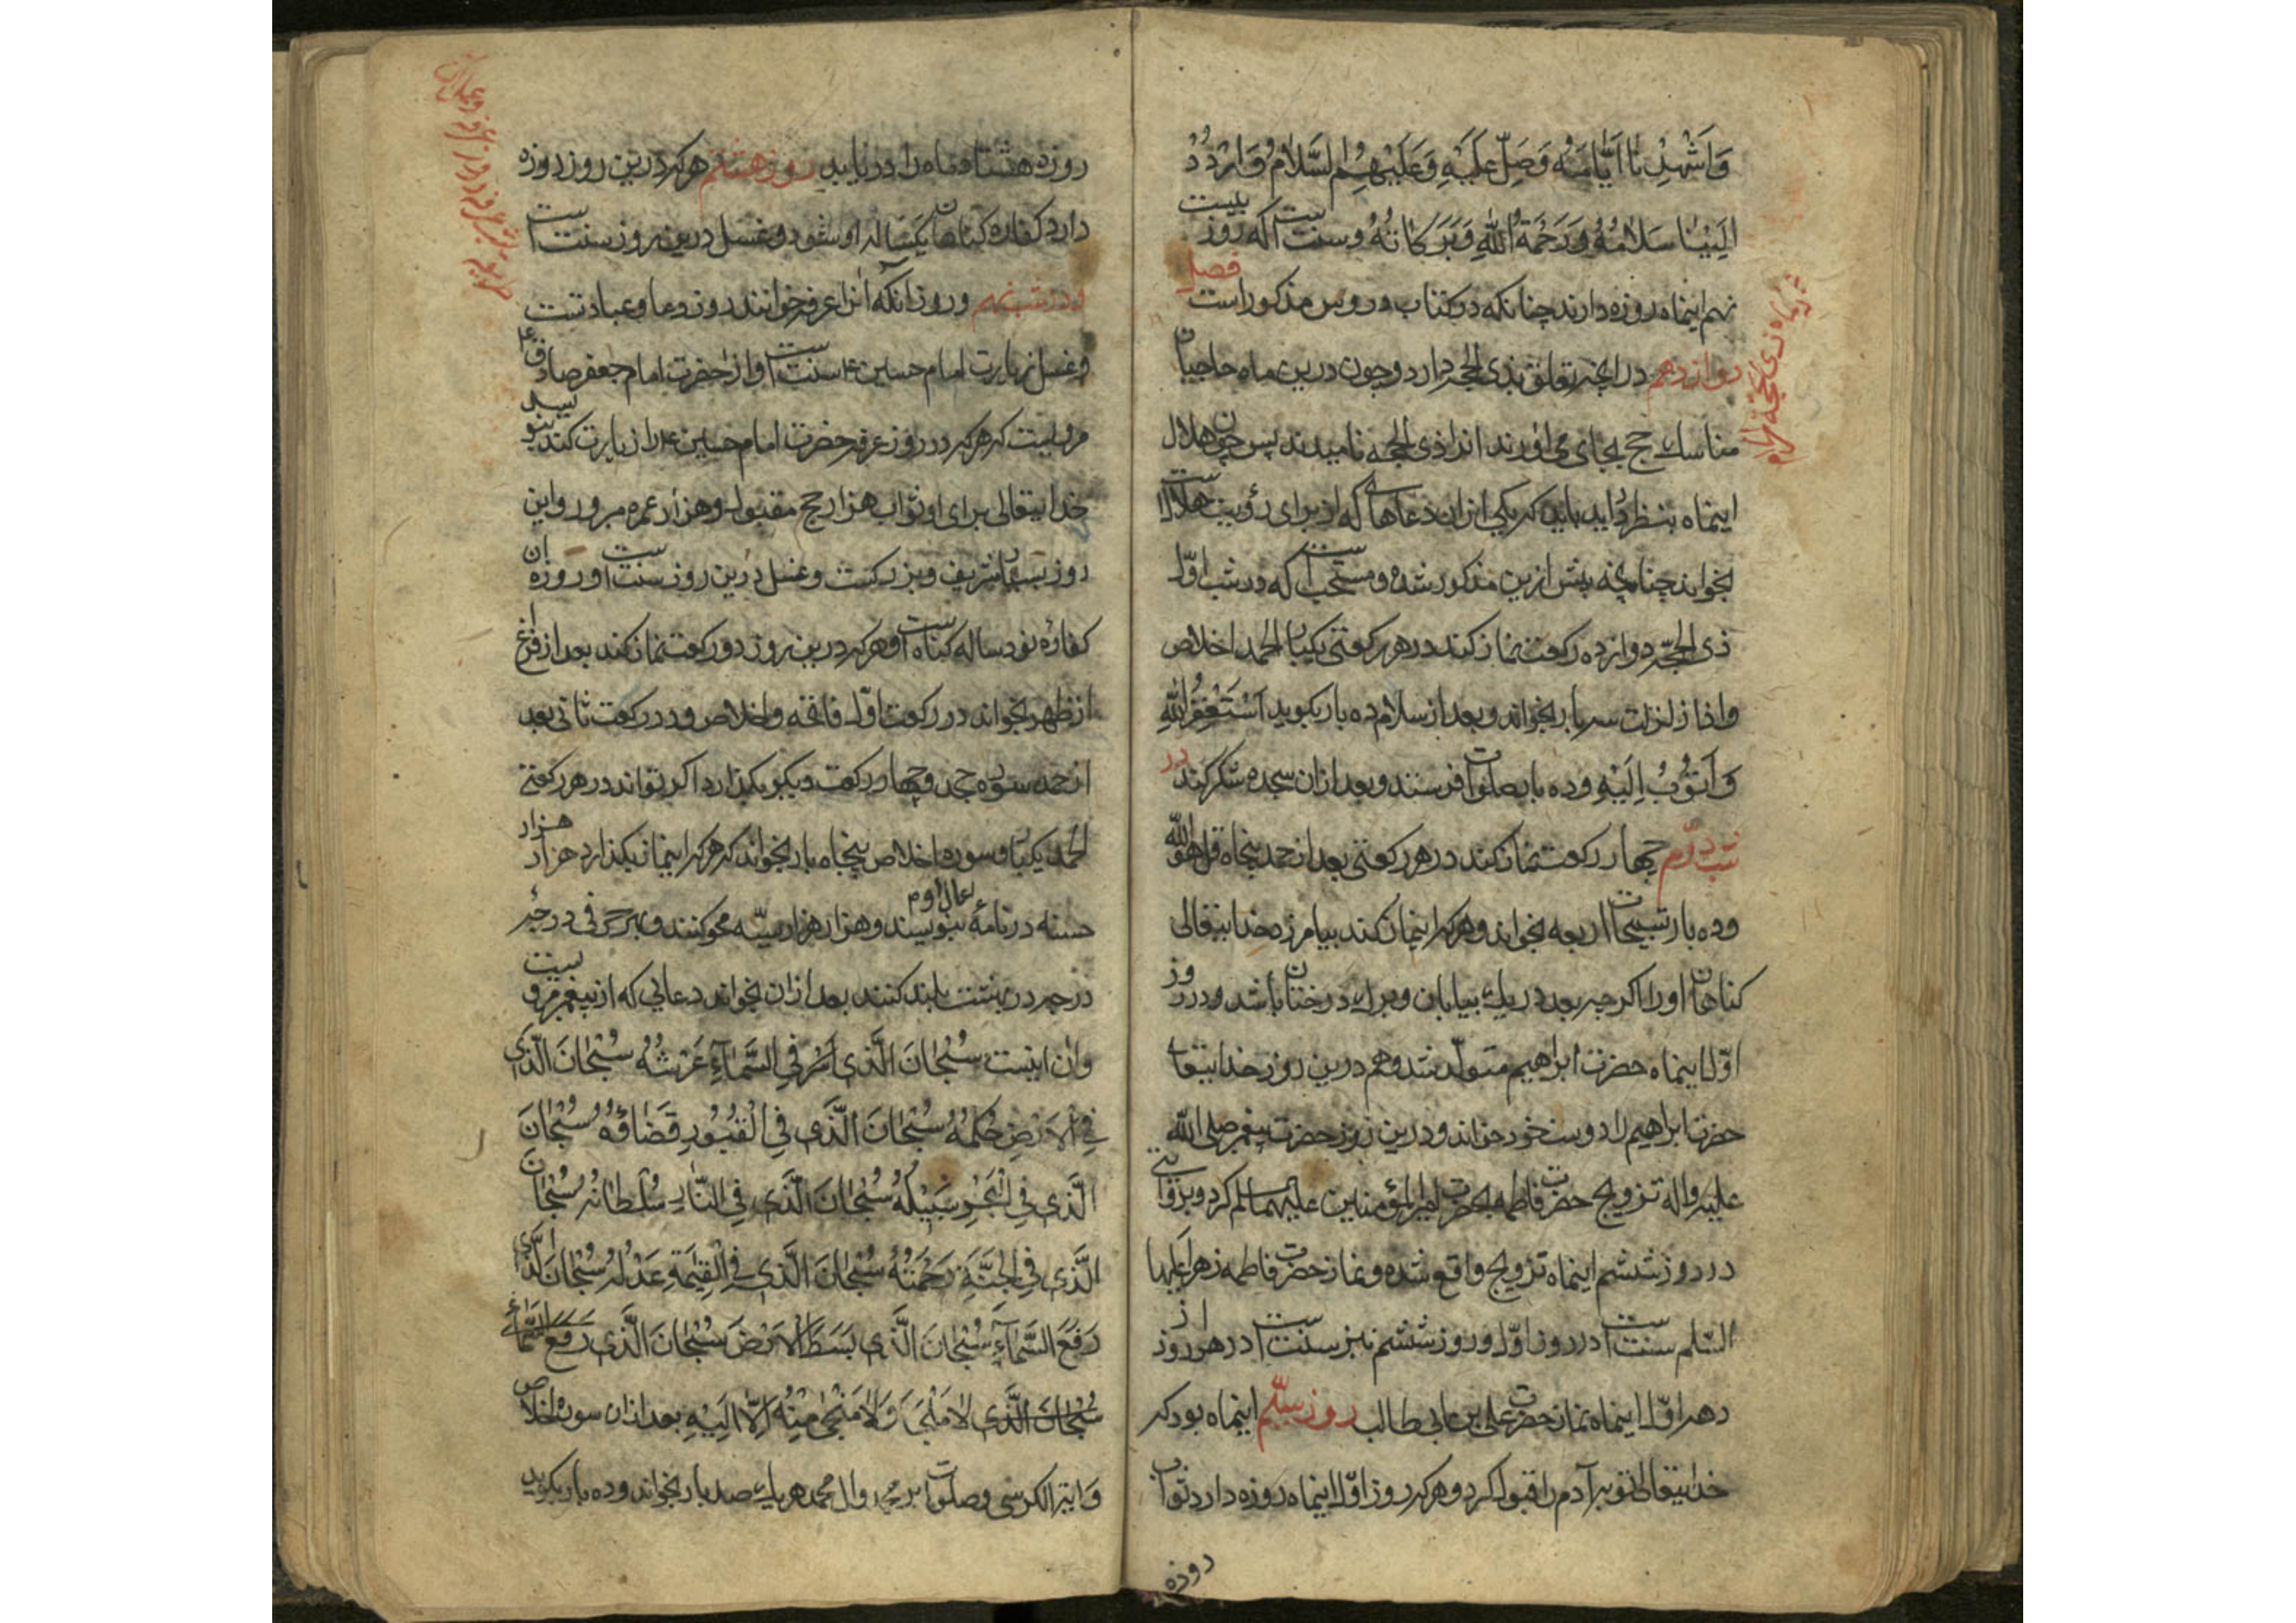 وَاَشْهِدْنا اَيّامَهُ وَصَلِّ عَلَيْهِ وَعَلَيْهِمُ السَّلامُ وَارْدُدْ
اِلَيْنا سَلامُهُ وَرَحْمَةُ اللّٰهِ وَبَرَكاتُهُ وسنت است که روز بیست
نهم اینماه روزه دارند چنانکه در کتاب دروس مذکور است فصل
دوازدهم در انچه تعلق بذی الحجه دارد وچون درین ماه حاجیان
در ماه ذی الحجة الحرام
مناسك حج بجای می اورند انرا ذی الحجه نامیدند پس چون هلال
اینماه بنظر دراید باید که یکی ازان دعاها که از برای رؤیت هلال است
بخواند چنانچه پیش ازین مذکور شده ومستحب است که در شب اوّل
ذی الحجّه دوازده رکعت نماز کند در هر رکعتی یکبار الحمد اخلاص
واذا زلزلت سه بار بخواند وبعد از سلام ده بار بکوید اَسْتَغْفِرُ اللّٰهَ
وَاَتُوبُ اِلَيْهِ وده بار صلوات فرستند وبعد ازان سجده شکر کند در
شب دوّم چهار رکعت نماز کند در هر رکعتی بعد از حمد پنجاه قل هو اللّٰه
وده بار تسبیحات اربعه بخواند وهرکه اینماز کند بیامرزد خدایتعالی
کناهان اورا اکرچه بعدد ریك بیابان وبرك درختان باشد ودر روز
اوّل اینماه حضرت ابراهیم متولّد شد وهم درین روز خدایتعالی
حضرت ابراهیم را دوست خود خواند ودرین روز حضرت پیغمبر صلی اللّٰه
علیه واله تزویج حضرت فاطمه بحضرت امیرالمؤمنین علیهما سلم کرد وبروایتی
در روز ششم اینماه تزویج واقع شده ونماز حضرت فاطمه زهرا علیها
السّلم سنت است در روز اوّل وروز ششم نیز سنت است در هر روز از
دهه اوّل اینماه نماز حضرت علی بن ابی طالب روز سیّم اینماه بود که
خدایتعالی توبه آدم را قبول کرد وهرکه روز اوّل اینماه روزه دارد ثواب
روزه
روزه هشتاد ماه را دریابد روز هشتم هرکه درین روز روزه
دارد کفاره کناهان یکساله او شود وغسل درین روز سنت است
ودر شب نهم وروز انکه انرا عرفه خوانند روز دعا وعبادتست
وغسل زیارت امام حسین ع سنت است واز حضرت امام جعفر صادق ع
مرویست که هرکه در روز عرفه حضرت امام حسین ع را زیارت کند بنویسد
خدایتعالی برای او ثواب هزار حج مقبول وهزار عمره مبرور واین
روز بسیار شریف وبزرکست وغسل درین روز سنت است وروزه ان
کفاره نود ساله کناه است وهرکه درین روز دو رکعت نماز کند بعد از فراغ
از ظهر بخواند در رکعت اوّل فاتحه واخلاص ودر رکعت ثانی بعد
از حمد سوره جحد وچهار رکعت دیکر بکذارد اکر تواند در هر رکعتی
الحمد یکبار وسوره اخلاص پنجاه بار بخواند که هرکه اینماز بکذارد هزار هزار
حسنه در نامهٔ اعمال او بنویسند وهزار هزار سیّئه محو کنند وبهر حرفی درجهٔ
در بهشت بلند کنند بعد ازان بخواند دعائی که از پیغمبر مرویست
وان اینست سُبْحانَ الَّذی فِي السَّماءِ عَرْشُهُ سُبْحانَ الَّذی
فِي الْاَرْضِ حُكْمُهُ سُبْحانَ الَّذی فِي الْقُبُورِ قَضاؤُهُ سُبْحانَ
الَّذی فِي الْبَحْرِ سَبيلُهُ سُبْحانَ الَّذی فِي النّارِ سُلْطانُهُ سُبْحانَ
الَّذی فِي الْجَنَّةِ رَحْمَتُهُ سُبْحانَ الَّذی فِي الْقِيٰمَةِ عَدْلُهُ سُبْحانَ الَّذی
رَفَعَ السَّماءَ سُبْحانَ الَّذی بَسَطَ الْاَرْضَ سُبْحانَ الَّذی رَفَعَ السَّماءَ
سُبْحانَ الَّذی لا مَلْجَأَ وَلا مَنْجٰی مِنْهُ اِلّا اِلَيْهِ بعد ازان سوره اخلاص
وایة الکرسی وصلوات بر محمد وال محمد هریك صد بار بخواند وده بار بکوید